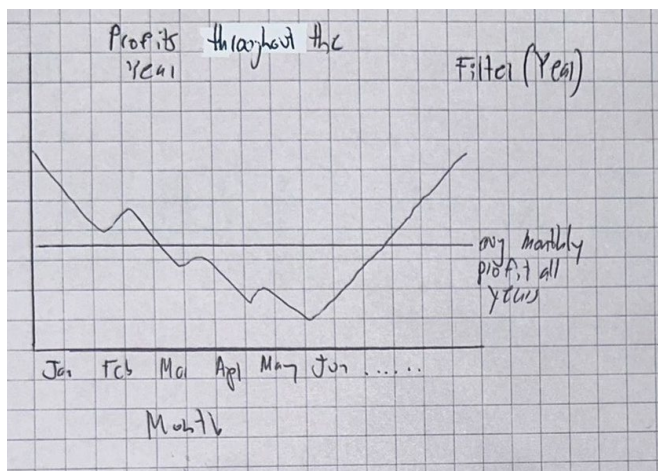 Profits throughout the
Year
Filter (Year)
avg monthly
profit all
years
Jan Feb Mar Apr May Jun ......
Month